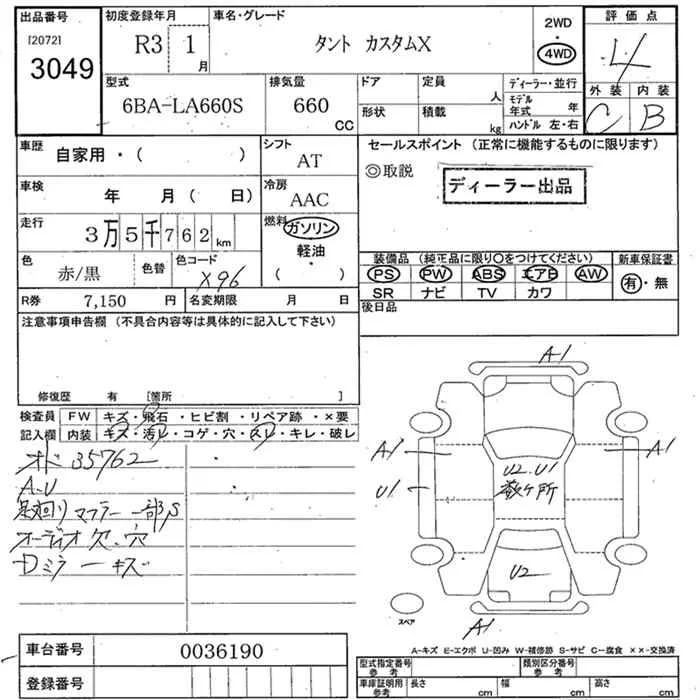 出品番号
[2072]
3049
初度登録年月
R3 1月
車名・グレード
タント カスタムX
2WD
・
4WD
評価点
4
外装 内装
C B
型式
6BA-LA660S
排気量
660 CC
ドア
形状
定員 人
積載 kg
ディーラー・並行
モデル年式 年
ハンドル 左・右
車歴
自家用・( )
シフト
AT
車検
年 月( 日)
冷房
AAC
走行
3万5千762km
燃料
ガソリン
・
軽油
・
( )
色
赤/黒
色替
色コード
X96
R券 7,150 円
名変期限 月 日
セールスポイント(正常に機能するものに限ります)
◎取説
ディーラー出品
装備品(純正品に限り○をつけてください)
PS PW ABS エアB AW
SR ナビ TV カワ
新車保証書
有・無
後日品
注意事項申告欄(不具合内容等は具体的に記入して下さい)
修復歴 有 [箇所 ]
検査員記入欄
FW キズ・飛石・ヒビ割・リペア跡・×要
内装 キズ・汚レ・コゲ・穴・スレ・キレ・破レ
オド 35762
A.U
足廻り マフラー 一部S
オーディオ欠.穴
Dミラーキズ
A1
A1
U1
U2.U1
数ヶ所
A1
U2
A1
スペア
A-キズ E-エクボ U-凹み W-補修跡 S-サビ C-腐食 ××-交換済
車台番号 0036190
登録番号
型式指定番号 参考
類別区分番号 参考
車庫証明用 参考 長さ cm 幅 cm 高さ cm